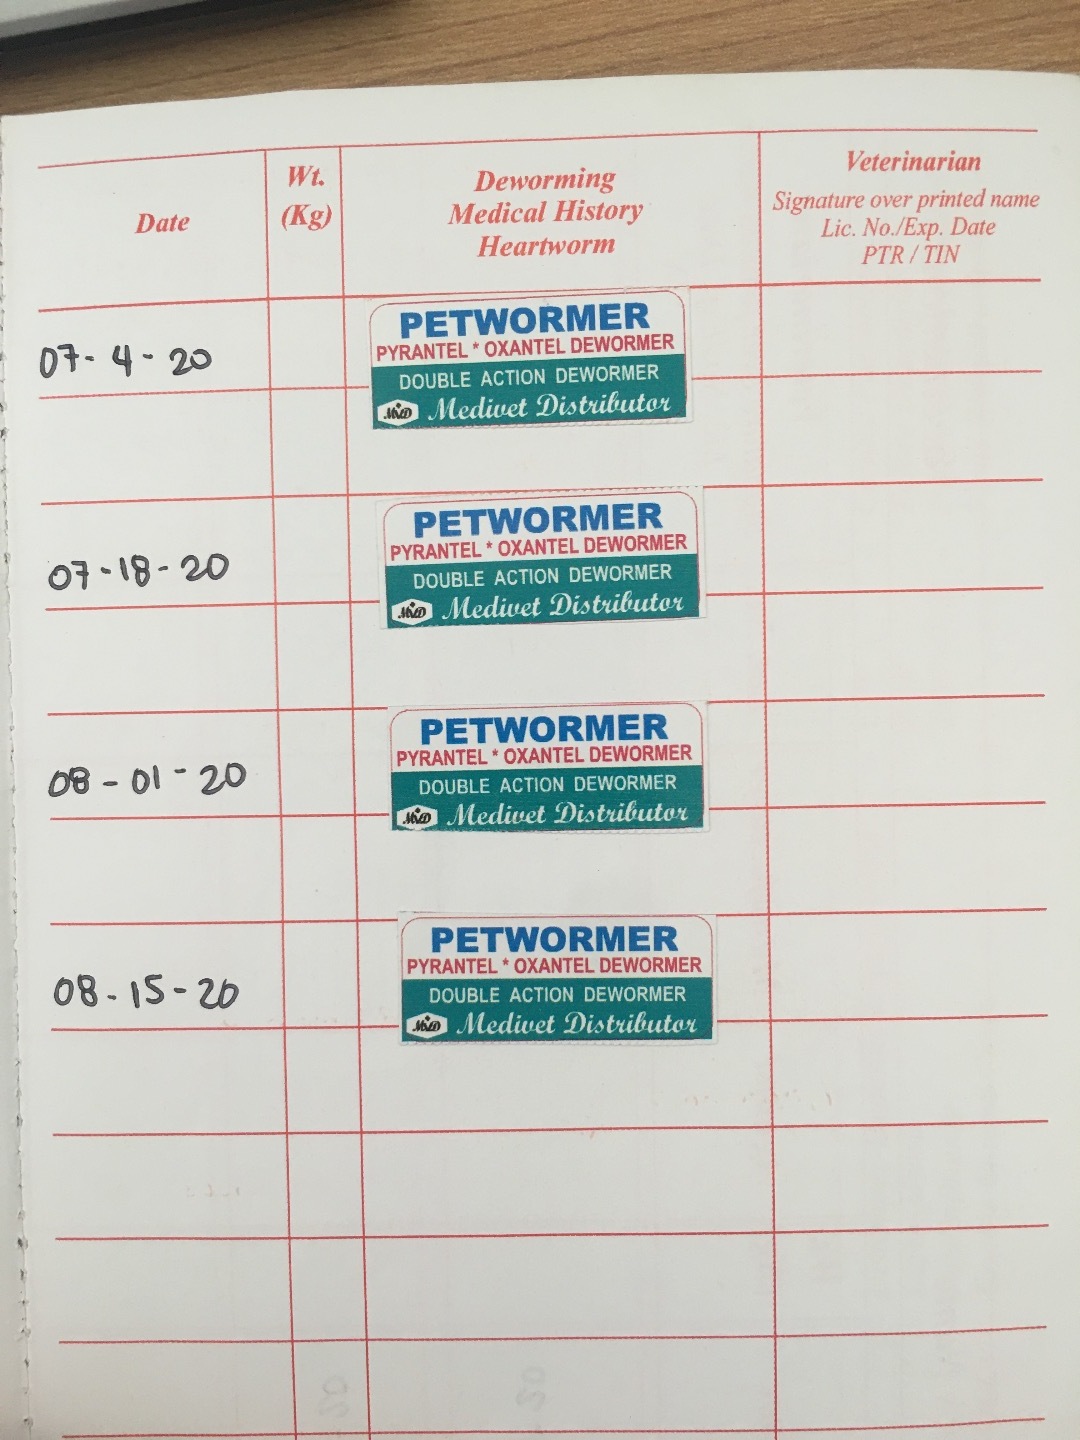 Date
Wt.
(Kg)
Deworming
Medical History
Heartworm
Veterinarian
Signature over printed name
Lic. No./Exp. Date
PTR / TIN
07-4-20
PETWORMER
PYRANTEL * OXANTEL DEWORMER
DOUBLE ACTION DEWORMER
MVD Medivet Distributor
07-18-20
PETWORMER
PYRANTEL * OXANTEL DEWORMER
DOUBLE ACTION DEWORMER
MVD Medivet Distributor
08-01-20
PETWORMER
PYRANTEL * OXANTEL DEWORMER
DOUBLE ACTION DEWORMER
MVD Medivet Distributor
08-15-20
PETWORMER
PYRANTEL * OXANTEL DEWORMER
DOUBLE ACTION DEWORMER
MVD Medivet Distributor